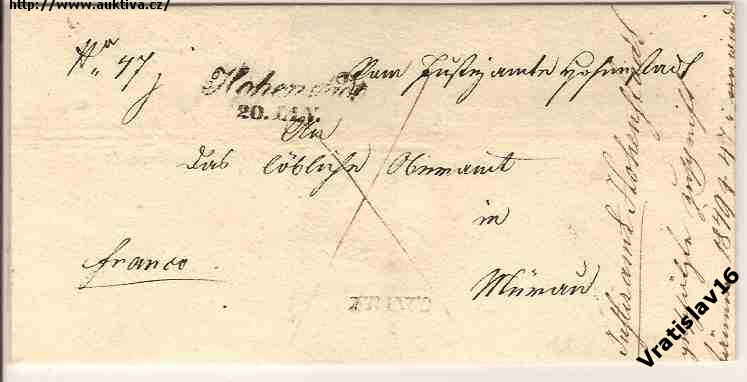 http://www.auktiva.cz/
No 47
Vom Justizamte Hohenstadt
Hohenstadt
20. JAN.
An
das löbliche Oberamt
in
Mürau
franco
FRANCO
Justizamt Hohenstadt
1849
Vratislav16